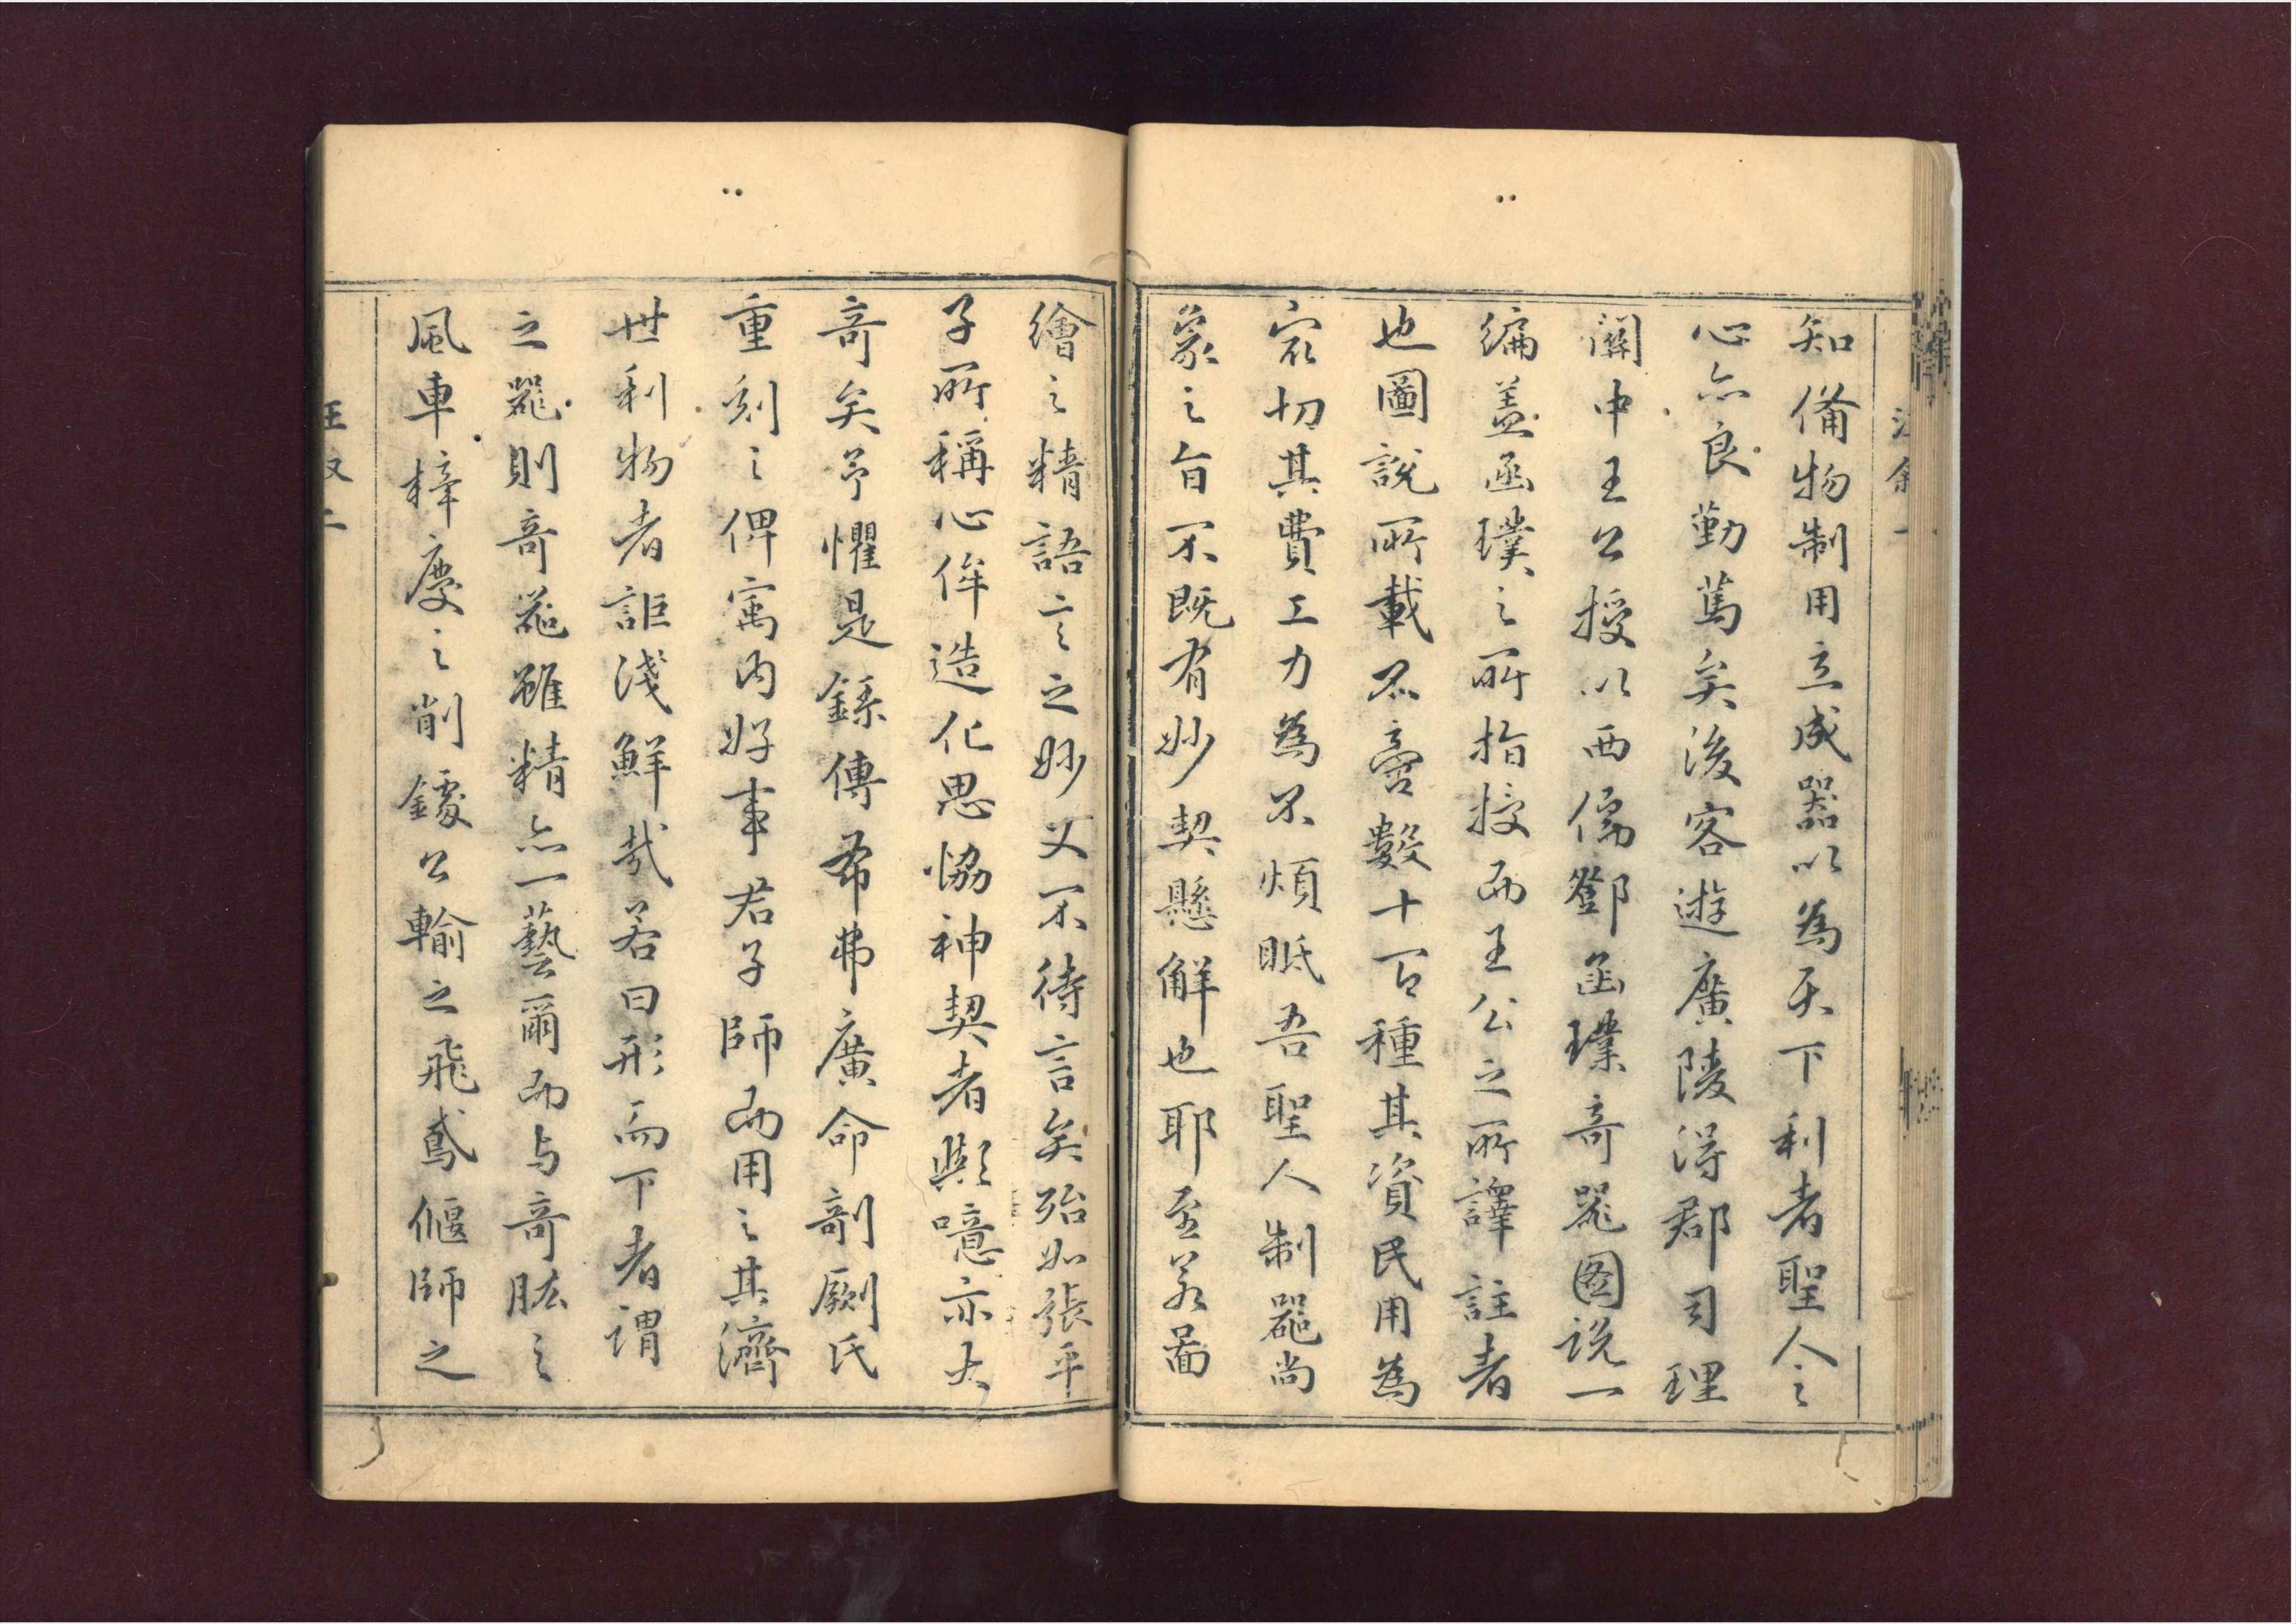 知備物制用立成器以為天下利者聖人之
心亦良勤篤矣後客遊廣陵得郡司理
關中王公授以西儒鄧函璞奇器图說一
編蓋函璞之所指授而王公之所譯註者
也圖說所載不啻數十百種其資民用為
最切其費工力為不煩眡吾聖人制器尚
象之旨不既有妙契懸解也耶至若啚
繪之精語言之妙又不待言矣殆如張平
子所稱心侔造化思協神契者歟噫亦大
奇矣予懼是錄傳布弗廣命剞劂氏
重刻之俾寓内好事君子師而用之其濟
世利物者詎淺鮮哉若曰形而下者謂
之器則奇器雖精亦一藝爾而与奇肱之
風車梓慶之削鐻公輸之飛鳶偃師之